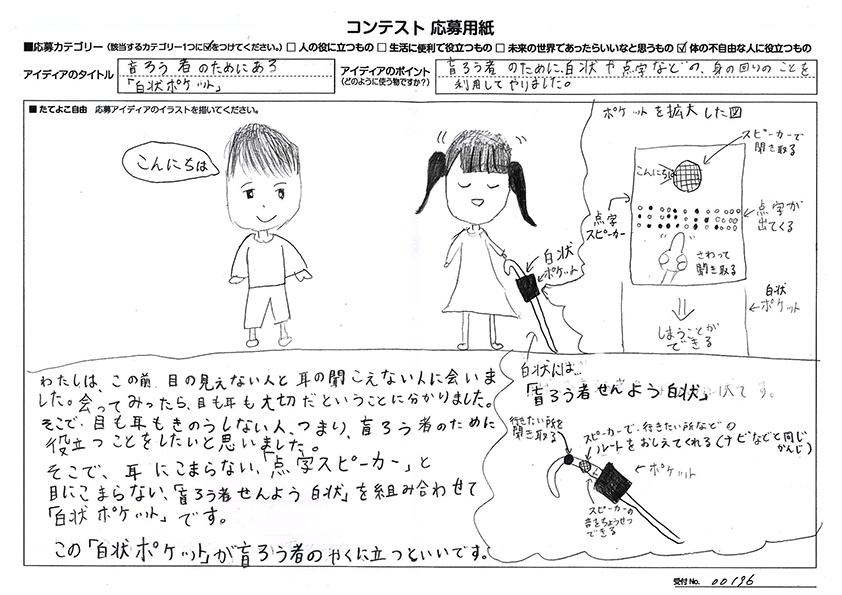 コンテスト 応募用紙
■応募カテゴリー (該当するカテゴリー1つに☑をつけてください。) □ 人の役に立つもの □ 生活に便利で役立つもの □ 未来の世界であったらいいなと思うもの ☑ 体の不自由な人に役立つもの
アイディアのタイトル
盲ろう者のためにある
「白状ポケット」
アイディアのポイント
(どのように使う物ですか?)
盲ろう者のために、白状や点字などの、身の回りのことを
利用してやりました。
■ たてよこ自由 応募アイディアのイラストを描いてください。
こんにちは
白状
ポケット
ポケットを拡大した図
スピーカーで
聞き取る
こんにちは
点字
スピーカー
点字が
出てくる
さわって
聞き取る
白状
ポケット
しまうことが
できる
わたしは、この前、目の見えない人と耳の聞こえない人に会いま
した。会ってみったら、目も耳も大切だということに分かりました。
そこで、目も耳もきのうしない人、つまり、盲ろう者のために
役立つことをしたいと思いました。
そこで、耳にこまらない、「点字スピーカー」と
目にこまらない、「盲ろう者せんよう白状」を組み合わせて
「白状ポケット」です。
この「白状ポケット」が盲ろう者のやくに立つといいです。
白状には…
「盲ろう者せんよう白状」
です。
行きたい所を
聞き取る
スピーカーで、行きたい所などの
ルートをおしえてくれる(ナビなどと同じ
かんじ)
ポケット
スピーカーの
音をちょうせつ
できる
受付No. 00196